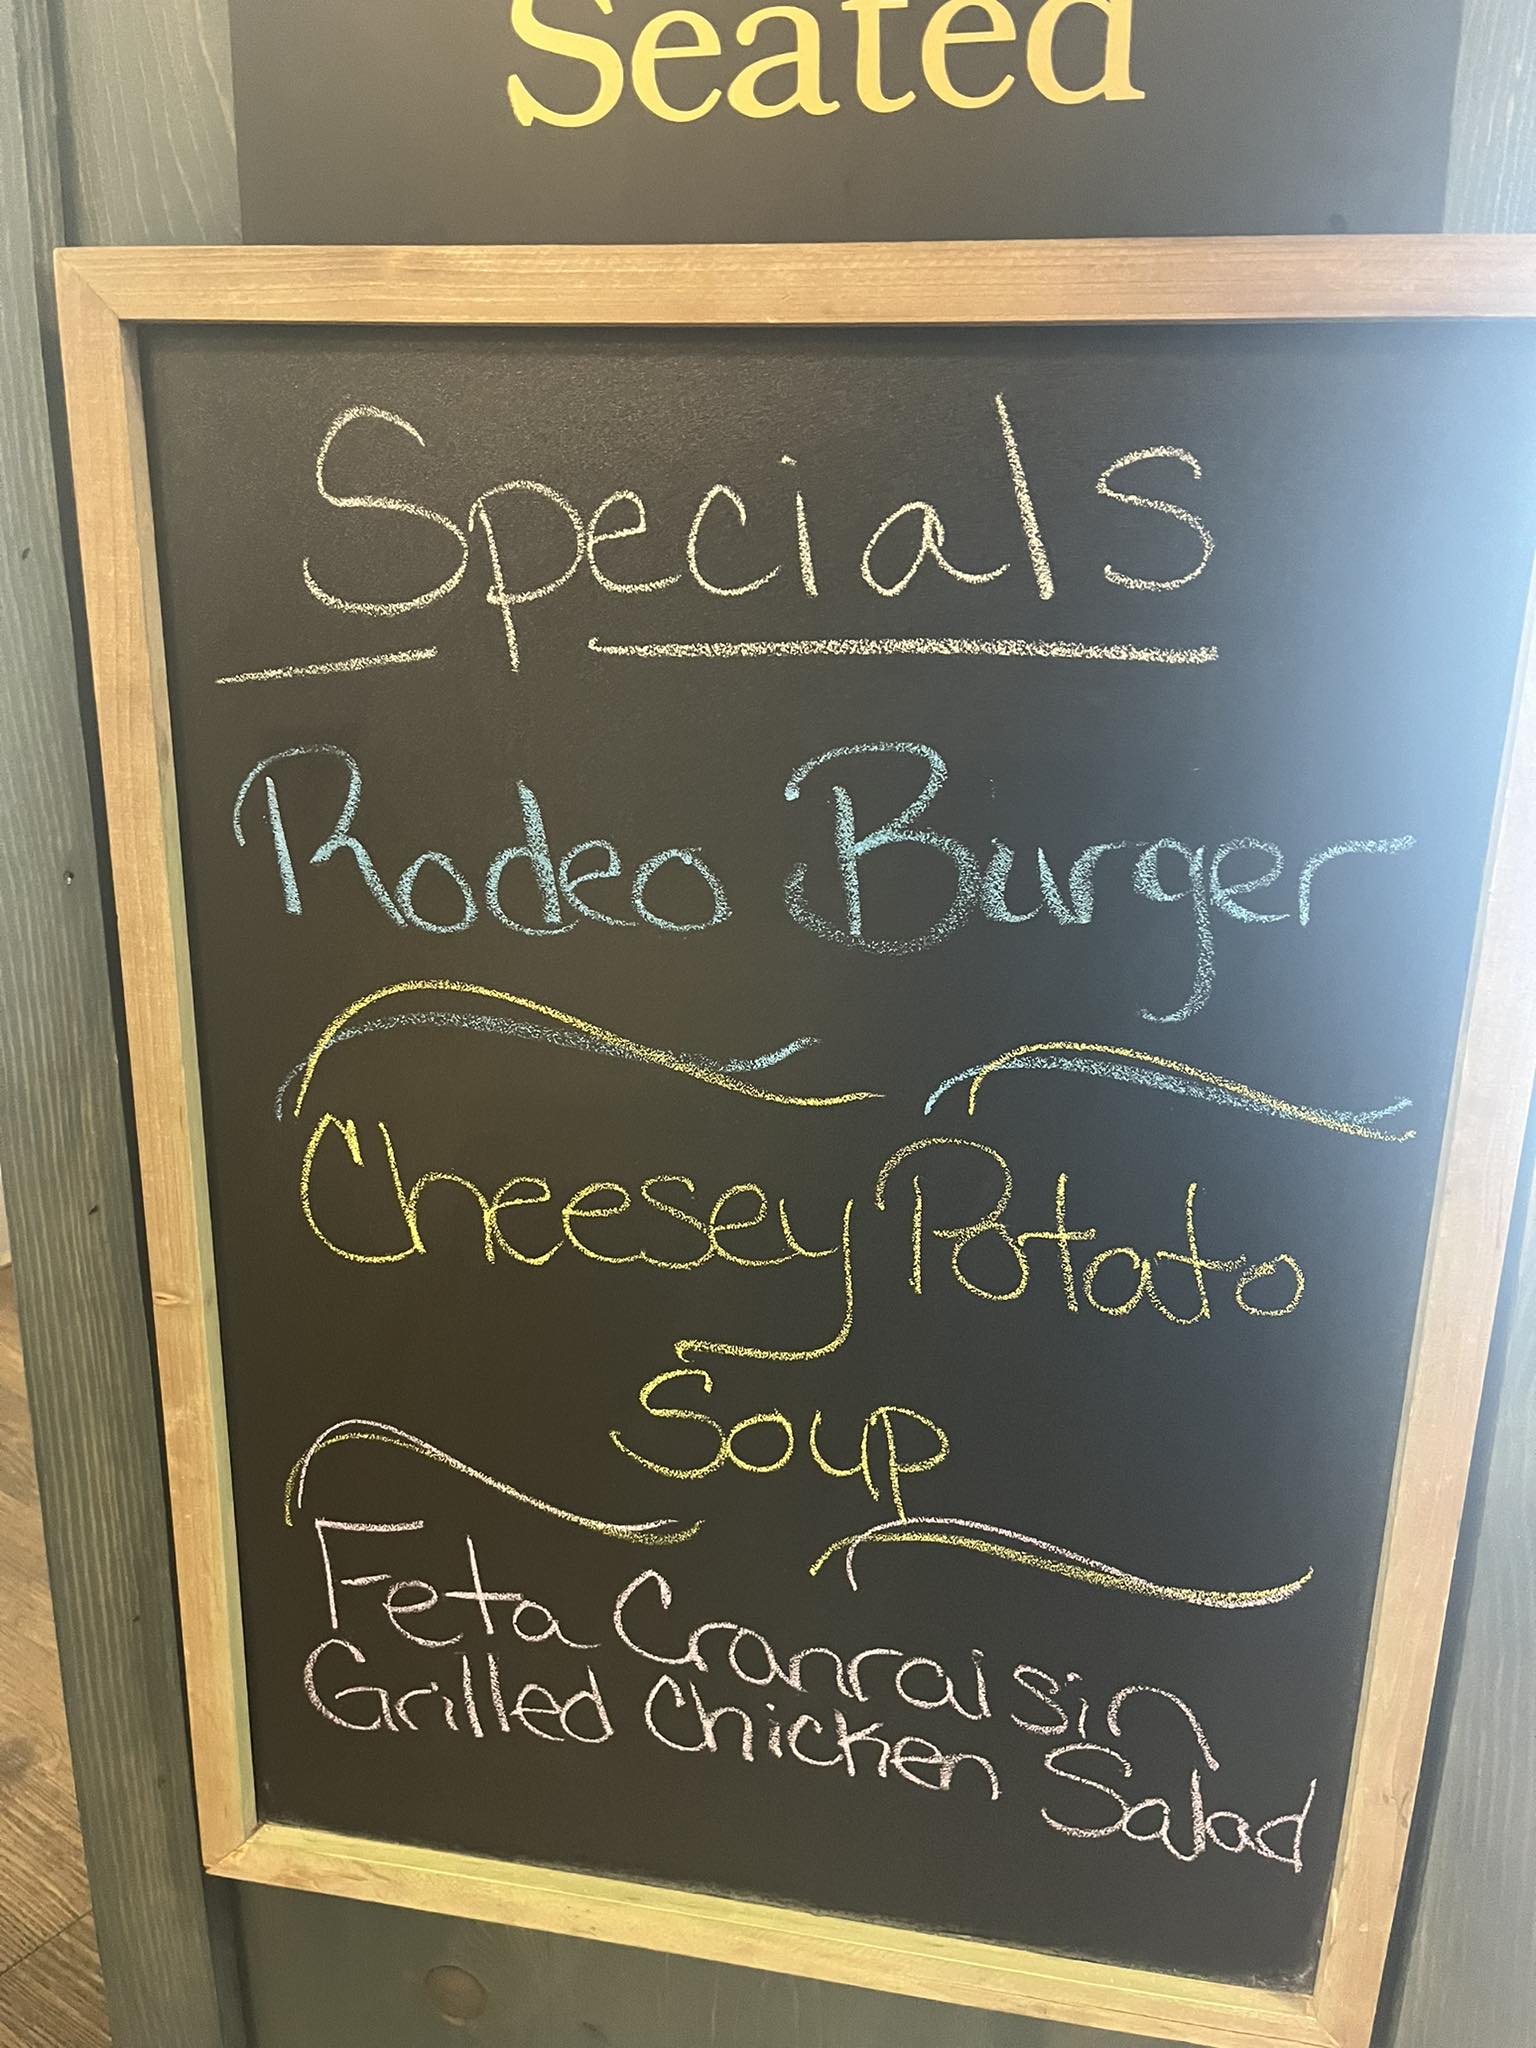 Seated
Specials
Rodeo Burger
Cheesey Potato
Soup
Feta Cranraisin
Grilled Chicken Salad